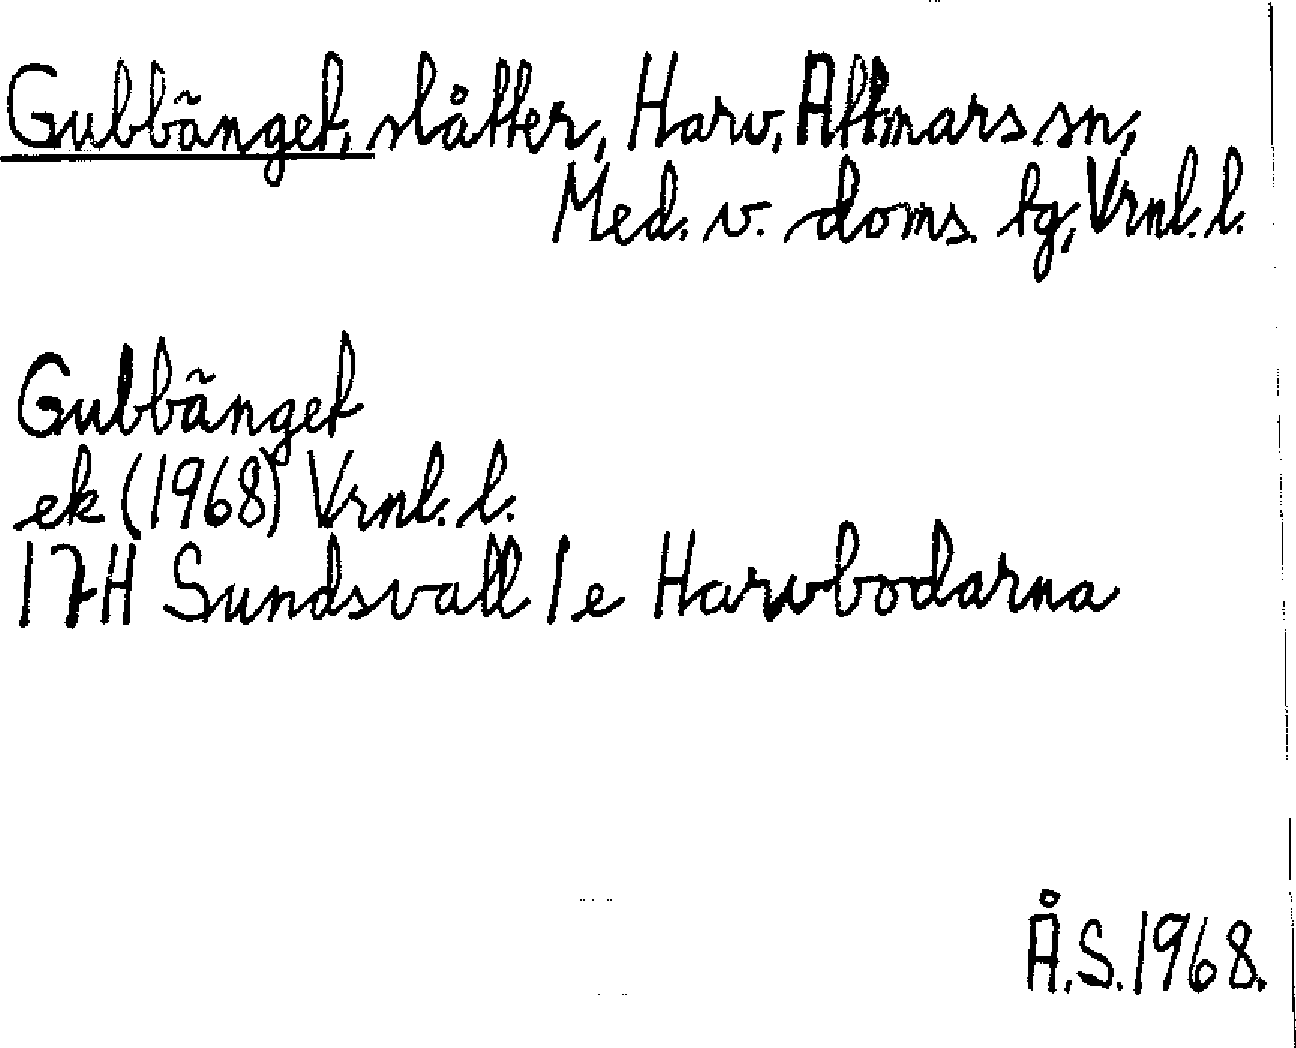 Gubbänget, slåtter, Harv, Attmars sn,
Med. v. doms. lg, Vrnl. l.
Gubbänget
ek (1968) Vrnl. l.
17H Sundsvall 1e Harvbodarna
Å.S. 1968.